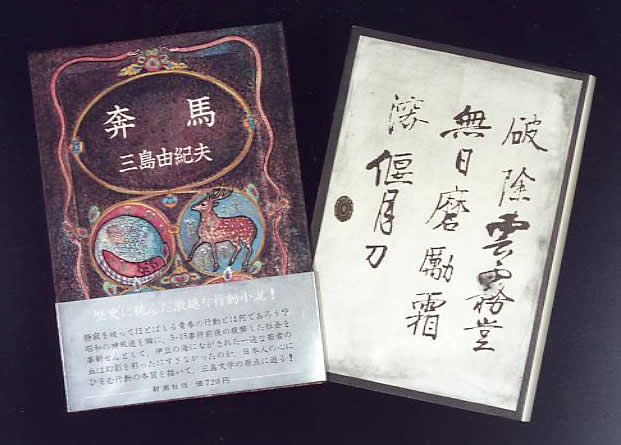 奔馬
三島由紀夫
歴史に挑んだ激越な行動小説!
静寂を破ってほとばしる青春の行動とは何であろう?
昭和の神風連を胸に、5・15事件前後の疲弊した社会を
革新せんとして、伊豆の海にながされた一途な若者の
血は幻影を彩ったにすぎなかったのか。日本人の心に
ひそむ行動の本質を描いて、三島文学の原点に迫る!
新潮社版 価720円
破除雲霧堂
無日磨勵霜
偃月刀